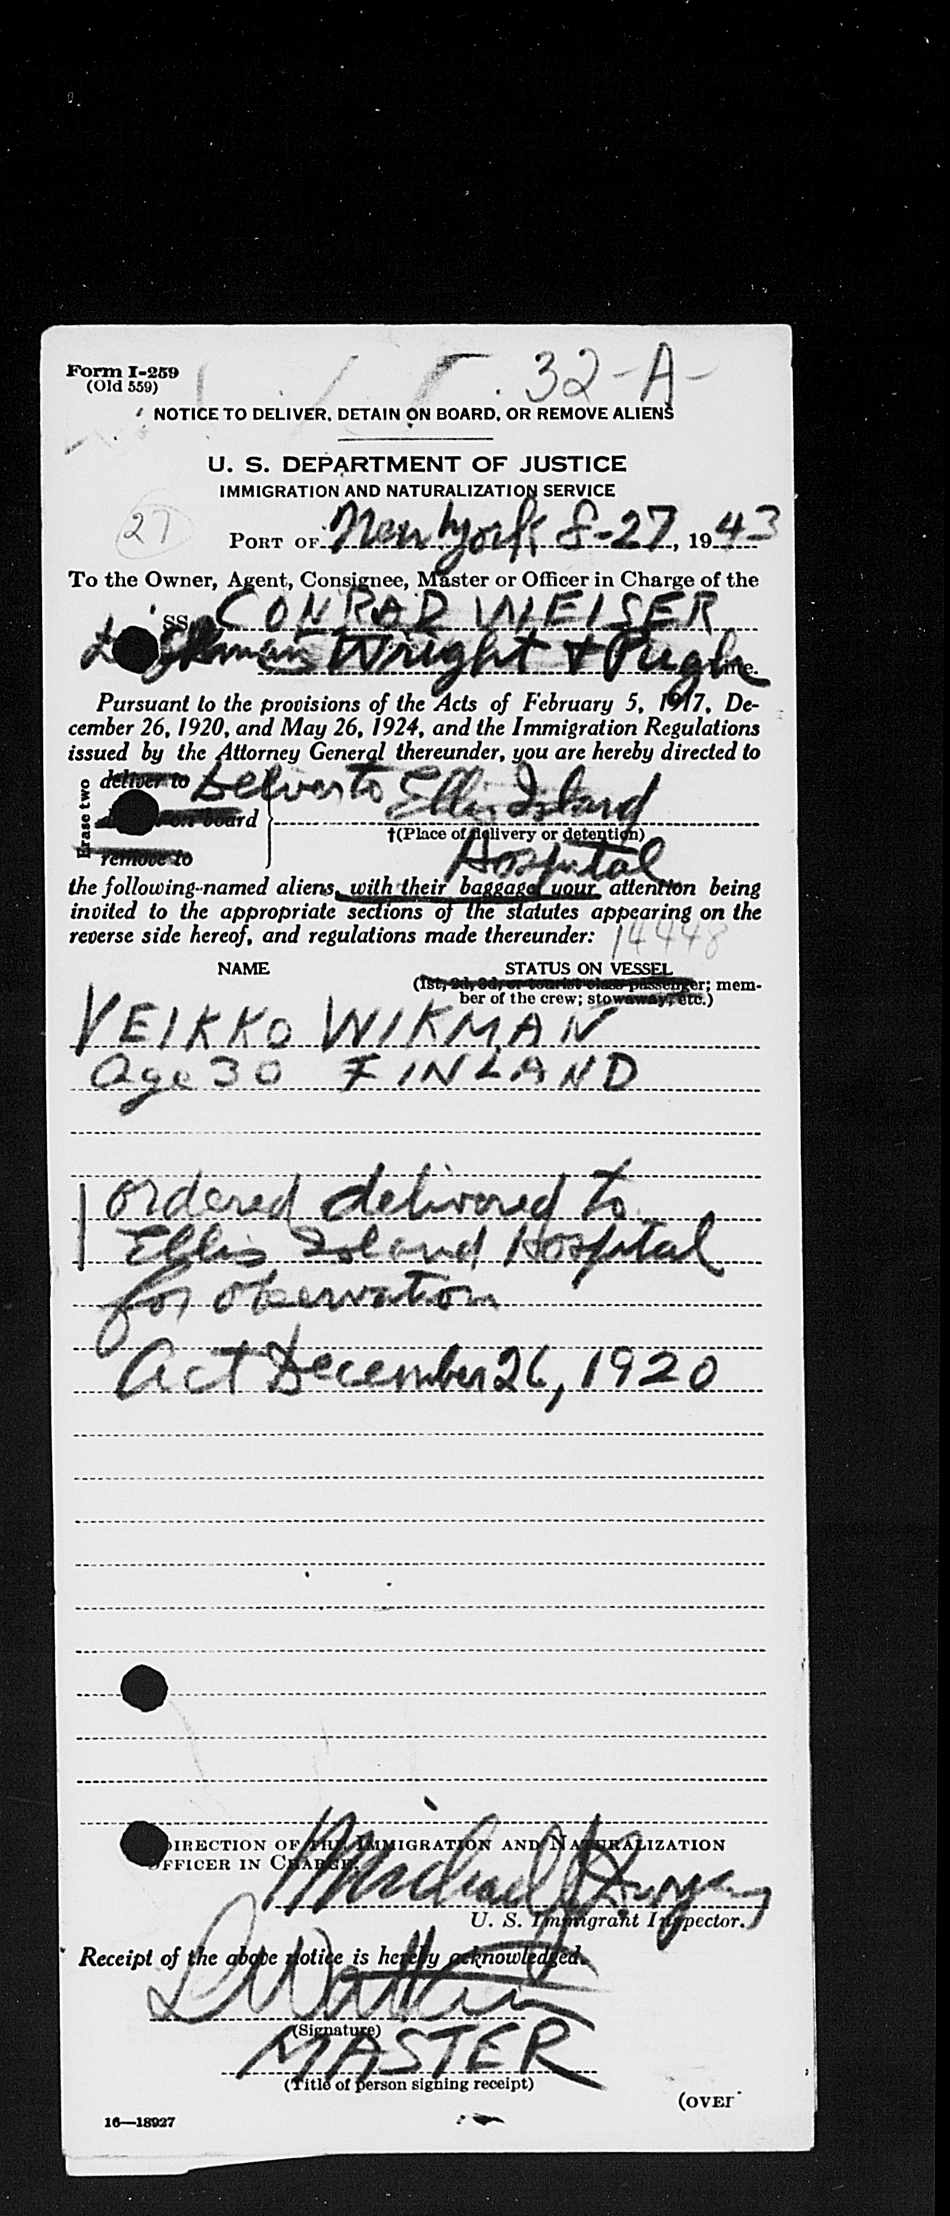 Form I-259
(Old 559)
32-A-
NOTICE TO DELIVER, DETAIN ON BOARD, OR REMOVE ALIENS
U. S. DEPARTMENT OF JUSTICE
IMMIGRATION AND NATURALIZATION SERVICE
27
PORT OF New York 8-27, 1943
To the Owner, Agent, Consignee, Master or Officer in Charge of the
SS CONRAD WEISER
Wright & Pugh Line.
Pursuant to the provisions of the Acts of February 5, 1917, De-
cember 26, 1920, and May 26, 1924, and the Immigration Regulations
issued by the Attorney General thereunder, you are hereby directed to
Erase two
deliver to Deliver to Ellis Island
on board
†(Place of delivery or detention)
remove to Hospital
the following-named aliens, with their baggage, your attention being
invited to the appropriate sections of the statutes appearing on the
reverse side hereof, and regulations made thereunder:
14448
NAME STATUS ON VESSEL
(1st, 2d, 3d, or tourist class passenger; mem-
ber of the crew; stowaway, etc.)
VEIKKO WIKMAN
Age 30 FINLAND
Ordered delivered to
Ellis Island Hospital
for observation
Act December 26, 1920
DIRECTION OF THE IMMIGRATION AND NATURALIZATION
OFFICER IN CHARGE.
Michael
U. S. Immigrant Inspector.
Receipt of the above notice is hereby acknowledged.
(Signature)
MASTER
(Title of person signing receipt)
(OVER
16—18927